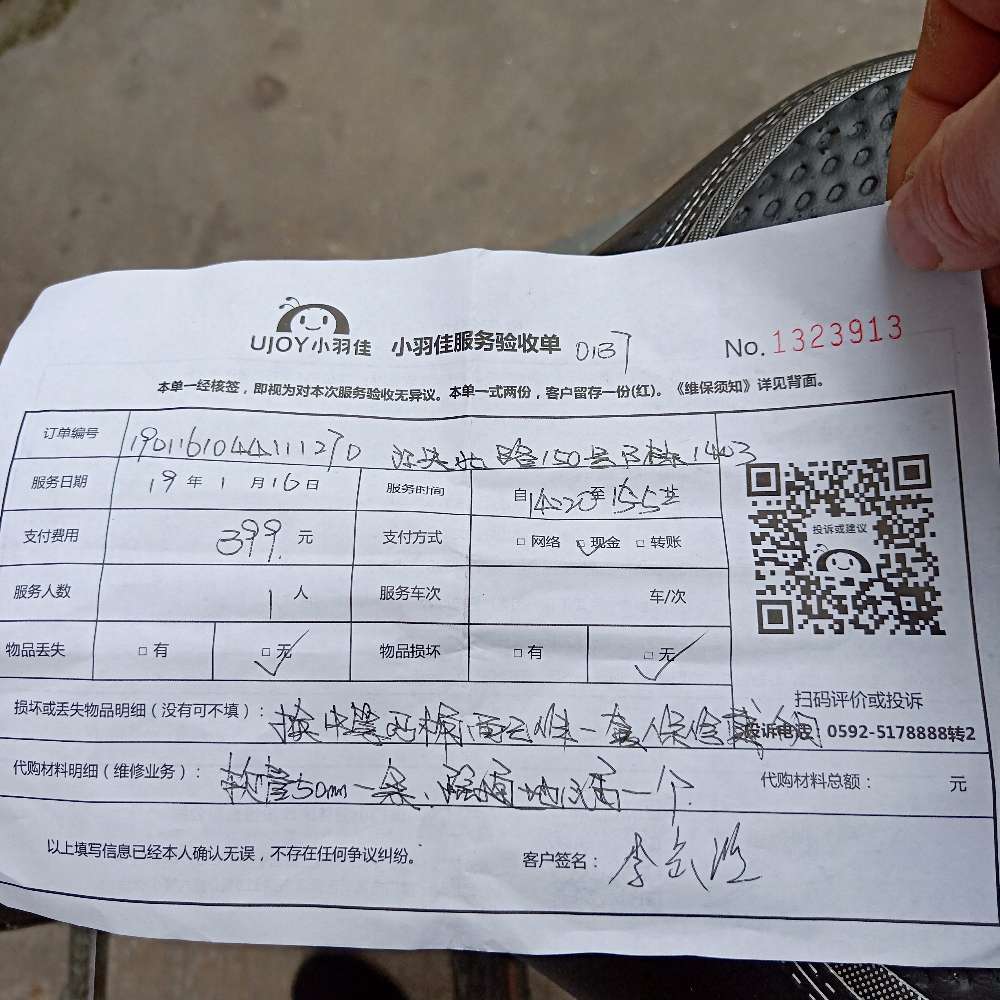 UJOY小羽佳 小羽佳服务验收单 No. 1323913
本单一经核签，即视为对本次服务验收无异议。本单一式两份，客户留存一份(红)。《维保须知》详见背面。
订单编号 路150号 1403
服务日期 19 年 1 月 16 日 服务时间 自 14:20 至
支付费用 399. 元 支付方式 □ 网络 □ 现金 □ 转账
投诉或建议
服务人数 1 人 服务车次 车/次
物品丢失 □ 有 □ 无 物品损坏 □ 有 □ 无
扫码评价或投诉
损坏或丢失物品明细（没有可不填）： 换 一套
投诉电话：0592-5178888转2
代购材料明细（维修业务）： 软管50mm一条、 地漏一个. 代购材料总额： 元
以上填写信息已经本人确认无误，不存在任何争议纠纷。 客户签名： 李